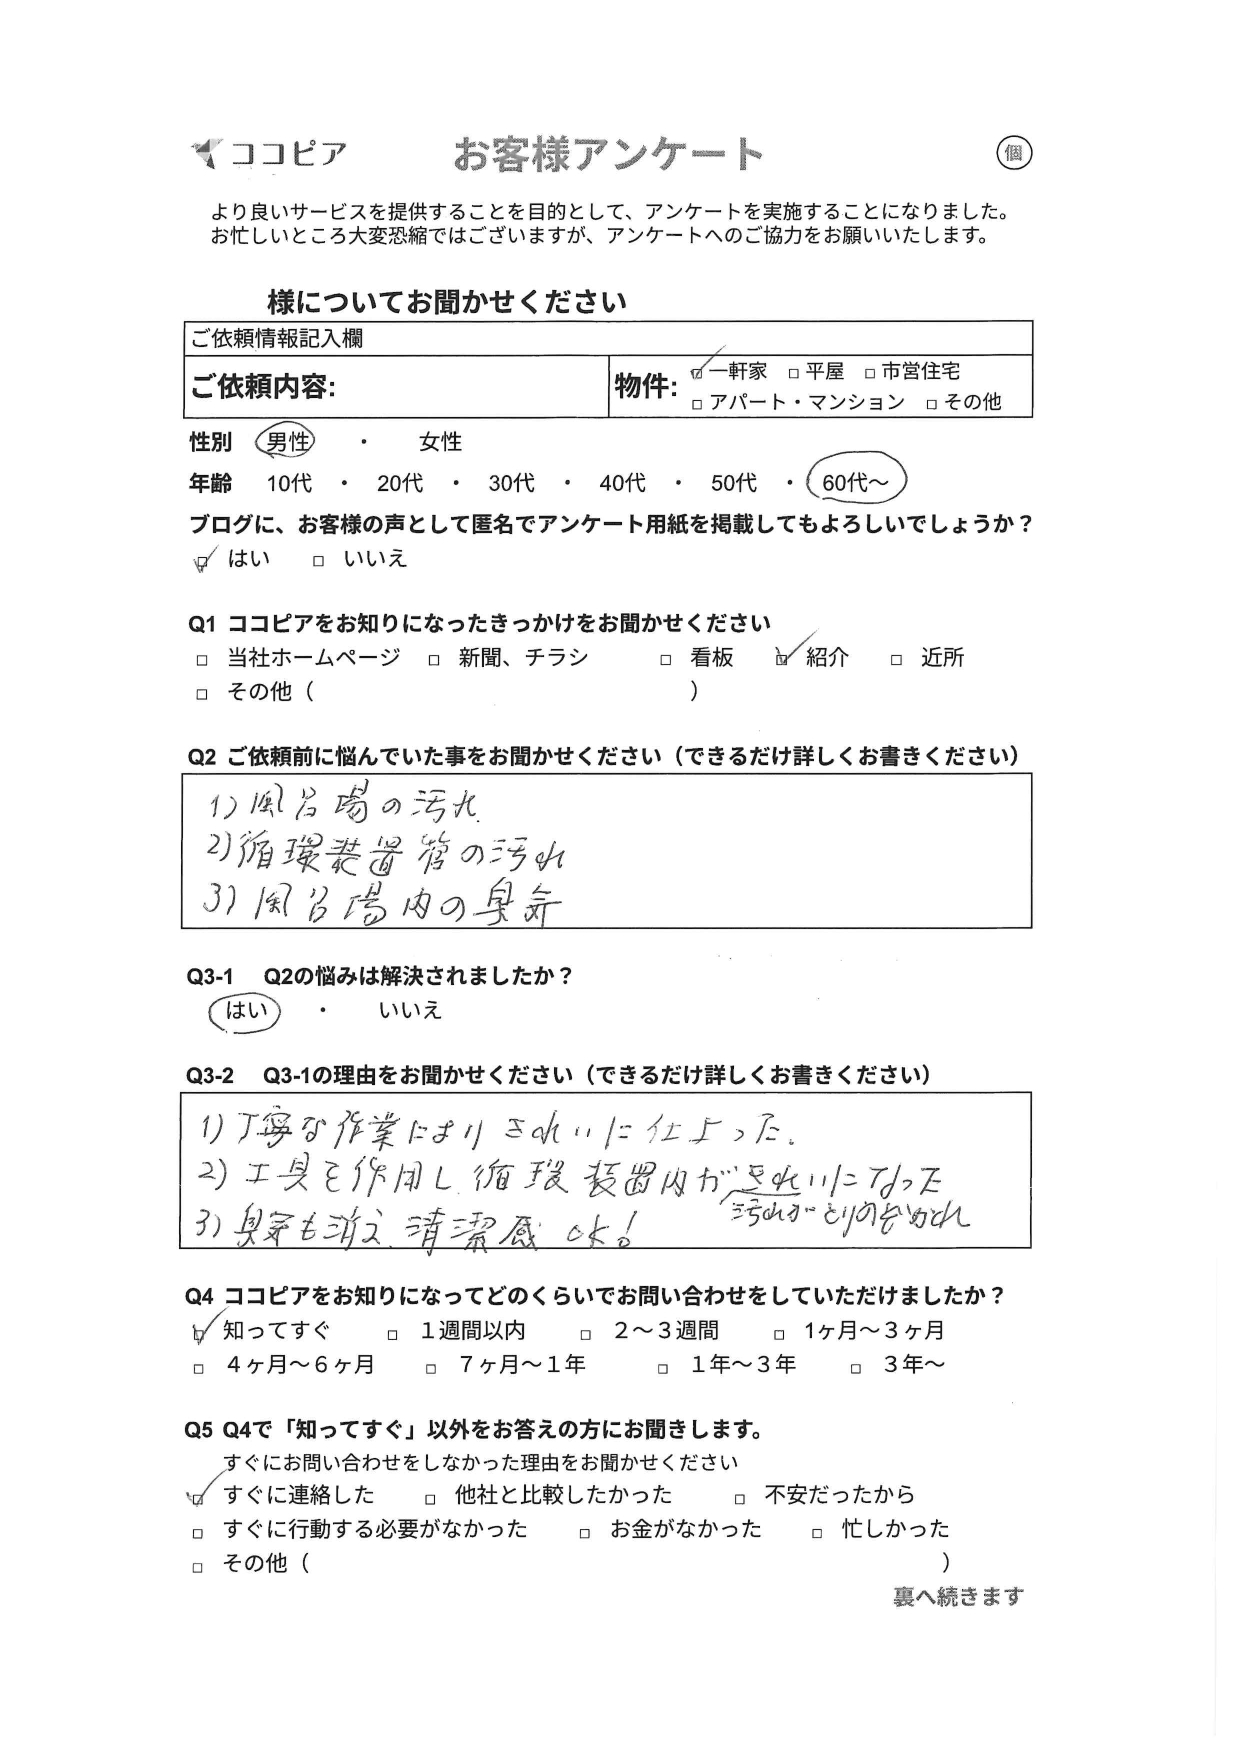 ココピア お客様アンケート 個
より良いサービスを提供することを目的として、アンケートを実施することになりました。
お忙しいところ大変恐縮ではございますが、アンケートへのご協力をお願いいたします。
様についてお聞かせください
ご依頼情報記入欄
ご依頼内容: 物件: ☑一軒家 □平屋 □市営住宅
□アパート・マンション □その他
性別 男性 ・ 女性
年齢 10代 ・ 20代 ・ 30代 ・ 40代 ・ 50代 ・ 60代～
ブログに、お客様の声として匿名でアンケート用紙を掲載してもよろしいでしょうか？
☑ はい □ いいえ
Q1 ココピアをお知りになったきっかけをお聞かせください
□ 当社ホームページ □ 新聞、チラシ □ 看板 ☑ 紹介 □ 近所
□ その他（ ）
Q2 ご依頼前に悩んでいた事をお聞かせください（できるだけ詳しくお書きください）
1) 風呂場の汚れ
2) 循環装置管の汚れ
3) 風呂場内の臭気
Q3-1 Q2の悩みは解決されましたか？
はい ・ いいえ
Q3-2 Q3-1の理由をお聞かせください（できるだけ詳しくお書きください）
1) 丁寧な作業によりきれいに仕上った.
2) 工具を作用し循環装置内がきれいになった
汚れがとりのぞかれ
3) 臭気も消え、清潔感 ok!
Q4 ココピアをお知りになってどのくらいでお問い合わせをしていただけましたか？
☑ 知ってすぐ □ １週間以内 □ ２～３週間 □ 1ヶ月～３ヶ月
□ ４ヶ月～６ヶ月 □ ７ヶ月～１年 □ １年～３年 □ ３年～
Q5 Q4で「知ってすぐ」以外をお答えの方にお聞きします。
すぐにお問い合わせをしなかった理由をお聞かせください
☑ すぐに連絡した □ 他社と比較したかった □ 不安だったから
□ すぐに行動する必要がなかった □ お金がなかった □ 忙しかった
□ その他（ ）
裏へ続きます